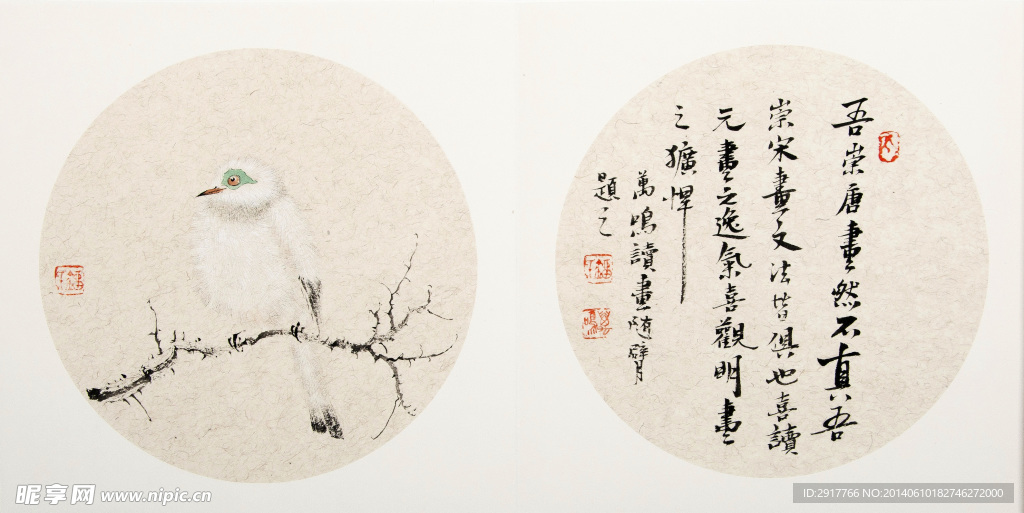 吾崇唐畫然不真吾
崇宋畫文法皆俱也喜讀
元畫之逸氣喜觀明畫
之獷悍
萬鳴讀畫隨
題之
昵享网 www.nipic.cn
ID:2917766 NO:20140610182746272000